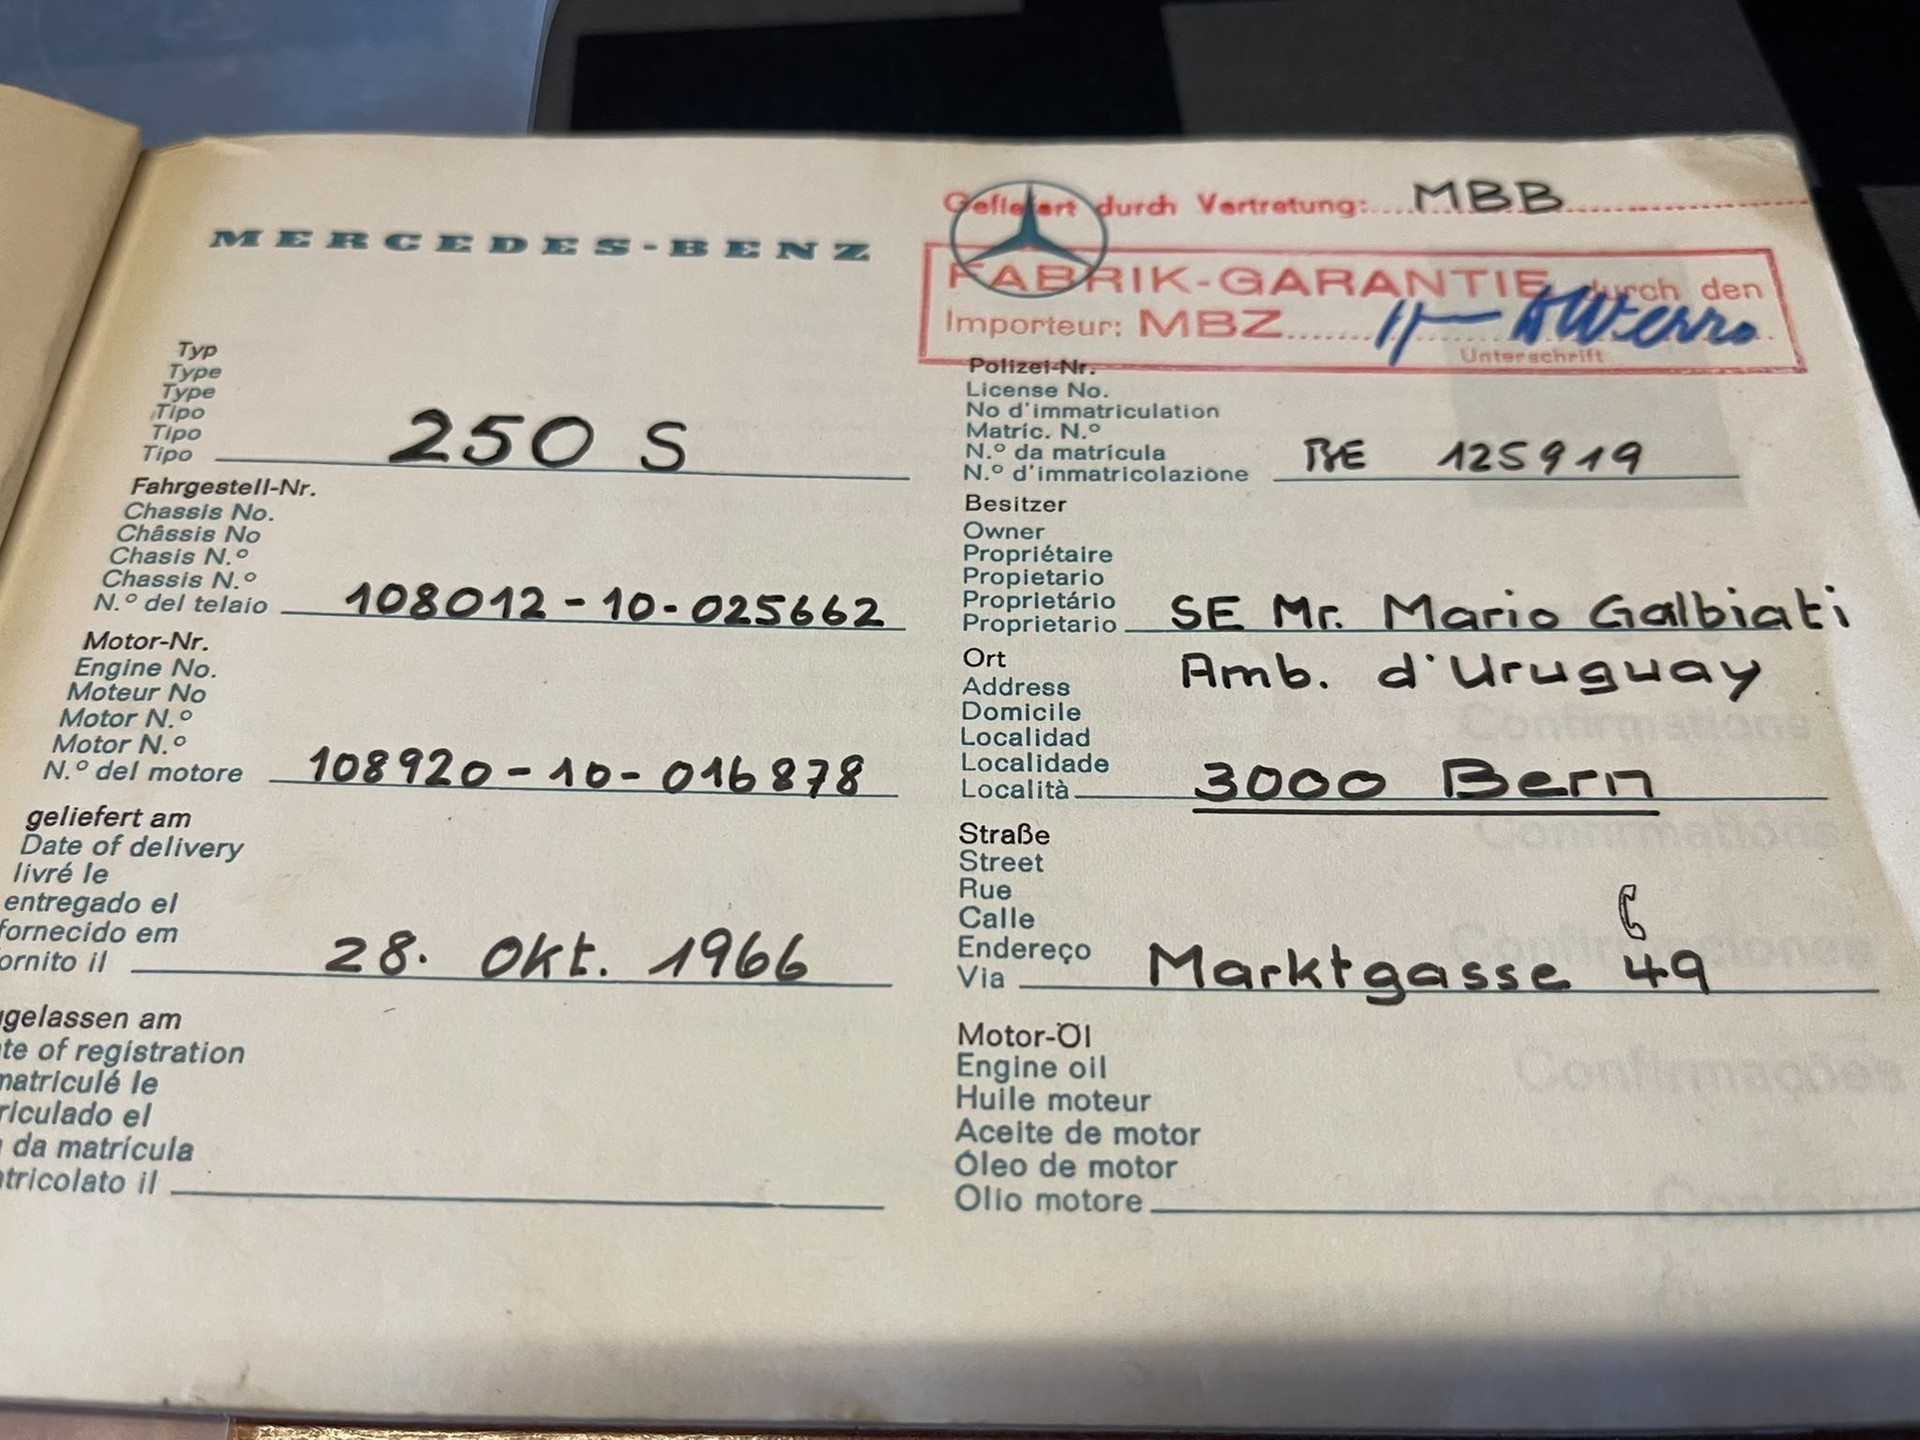 MERCEDES-BENZ
Geliefert durch Vertretung: MBB
FABRIK-GARANTIE durch den
Importeur: MBZ
Unterschrift
Typ
Type
Type
Tipo
Tipo
Tipo 250 S
Fahrgestell-Nr.
Chassis No.
Châssis No
Chasis N.º
Chassis N.º
N.º del telaio 108012-10-025662
Motor-Nr.
Engine No.
Moteur No
Motor N.º
Motor N.º
N.º del motore 108920-10-016878
geliefert am
Date of delivery
livré le
entregado el
fornecido em
ornito il 28. Okt. 1966
gelassen am
te of registration
matriculé le
riculado el
da matrícula
tricolato il
Polizei-Nr.
License No.
No d'immatriculation
Matríc. N.º
N.º da matrícula
N.º d'immatricolazione BE 125919
Besitzer
Owner
Propriétaire
Propietario
Proprietário
Proprietario SE Mr. Mario Galbiati
Ort Amb. d'Uruguay
Address
Domicile
Localidad
Localidade
Località 3000 Bern
Straße
Street
Rue
Calle
Endereço
Via Marktgasse 49
Motor-Öl
Engine oil
Huile moteur
Aceite de motor
Óleo de motor
Olio motore
Confirmations
Confirmations
Confirmaciones
Confirmações